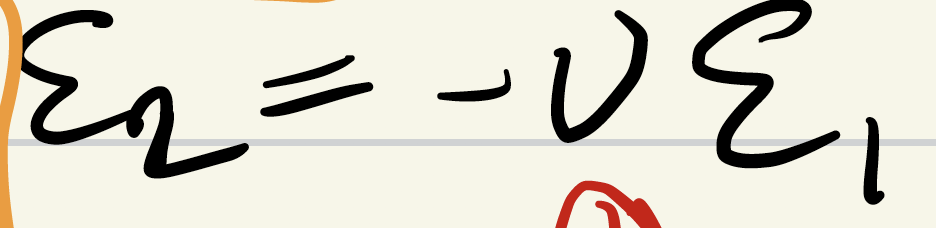 ε₂ = -υ ε₁